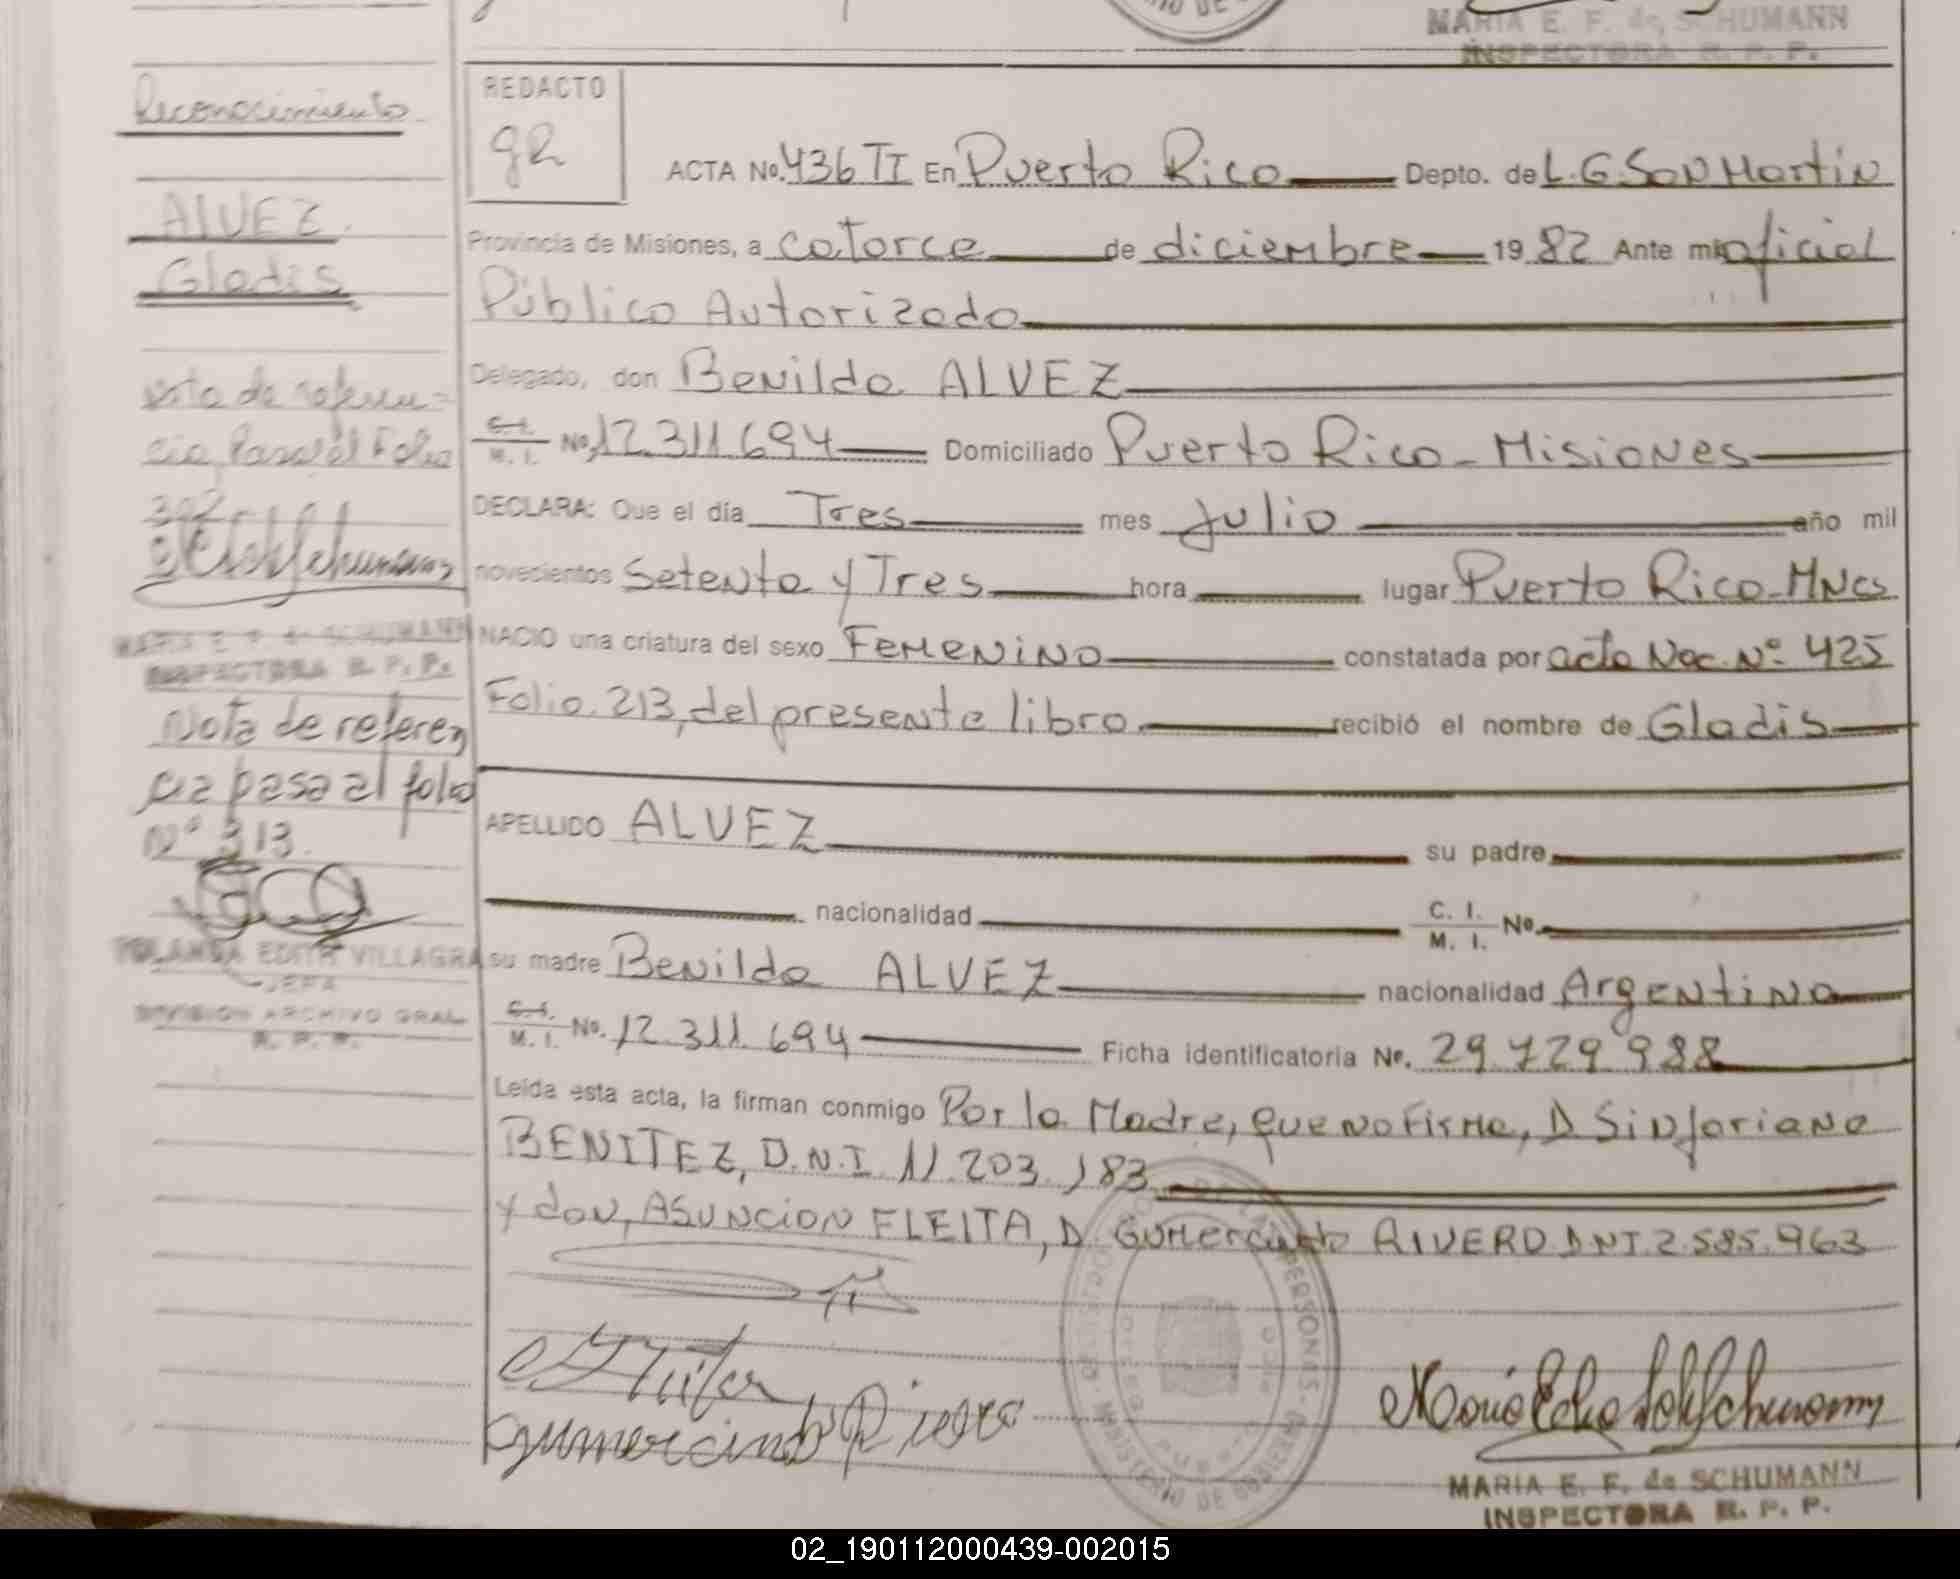 MARIA E. F. de SCHUMANN
INSPECTORA R. P. P.
Reconocimiento
ALVEZ
Gladis
nota de referen=
cia Pasa al Folio
302
MARIA E. F. de SCHUMANN
INSPECTORA R. P. P.
Nota de referen
cia pasa al folio
Nº 313.
YOLANDA EDITH VILLAGRA
JEFA
DIVISION ARCHIVO GRAL
R. P. P.
REDACTO
gR
ACTA No. 436 TI En Puerto Rico Depto. de L.G. San Martin
Provincia de Misiones, a catorce de diciembre 1982 Ante mi oficial
Público Autorizado
Delegado, don Benilda ALVEZ
C. I. / M. I. No. 12.311.694 Domiciliado Puerto Rico - Misiones
DECLARA: Que el día Tres mes Julio año mil
novecientos Setenta y Tres hora lugar Puerto Rico-Mnes
NACIO una criatura del sexo Femenino constatada por acta Nac. Nº 425
Folio 213, del presente libro recibió el nombre de Gladis
APELLIDO ALVEZ su padre
nacionalidad C. I. / M. I. No.
su madre Benilda ALVEZ nacionalidad Argentina
C. I. / M. I. No. 12.311.694 Ficha identificatoria No. 29.729.988
Leída esta acta, la firman conmigo Por la Madre, que no Firma, D Sinforiano
BENITEZ, D.N.I 11.203.183
y don, ASUNCION FLEITA, D. Gumercindo RIVERO DNI. 2.585.963
Gumercindo Rivero
MARIA E. F. de SCHUMANN
INSPECTORA R. P. P.
02_190112000439-002015